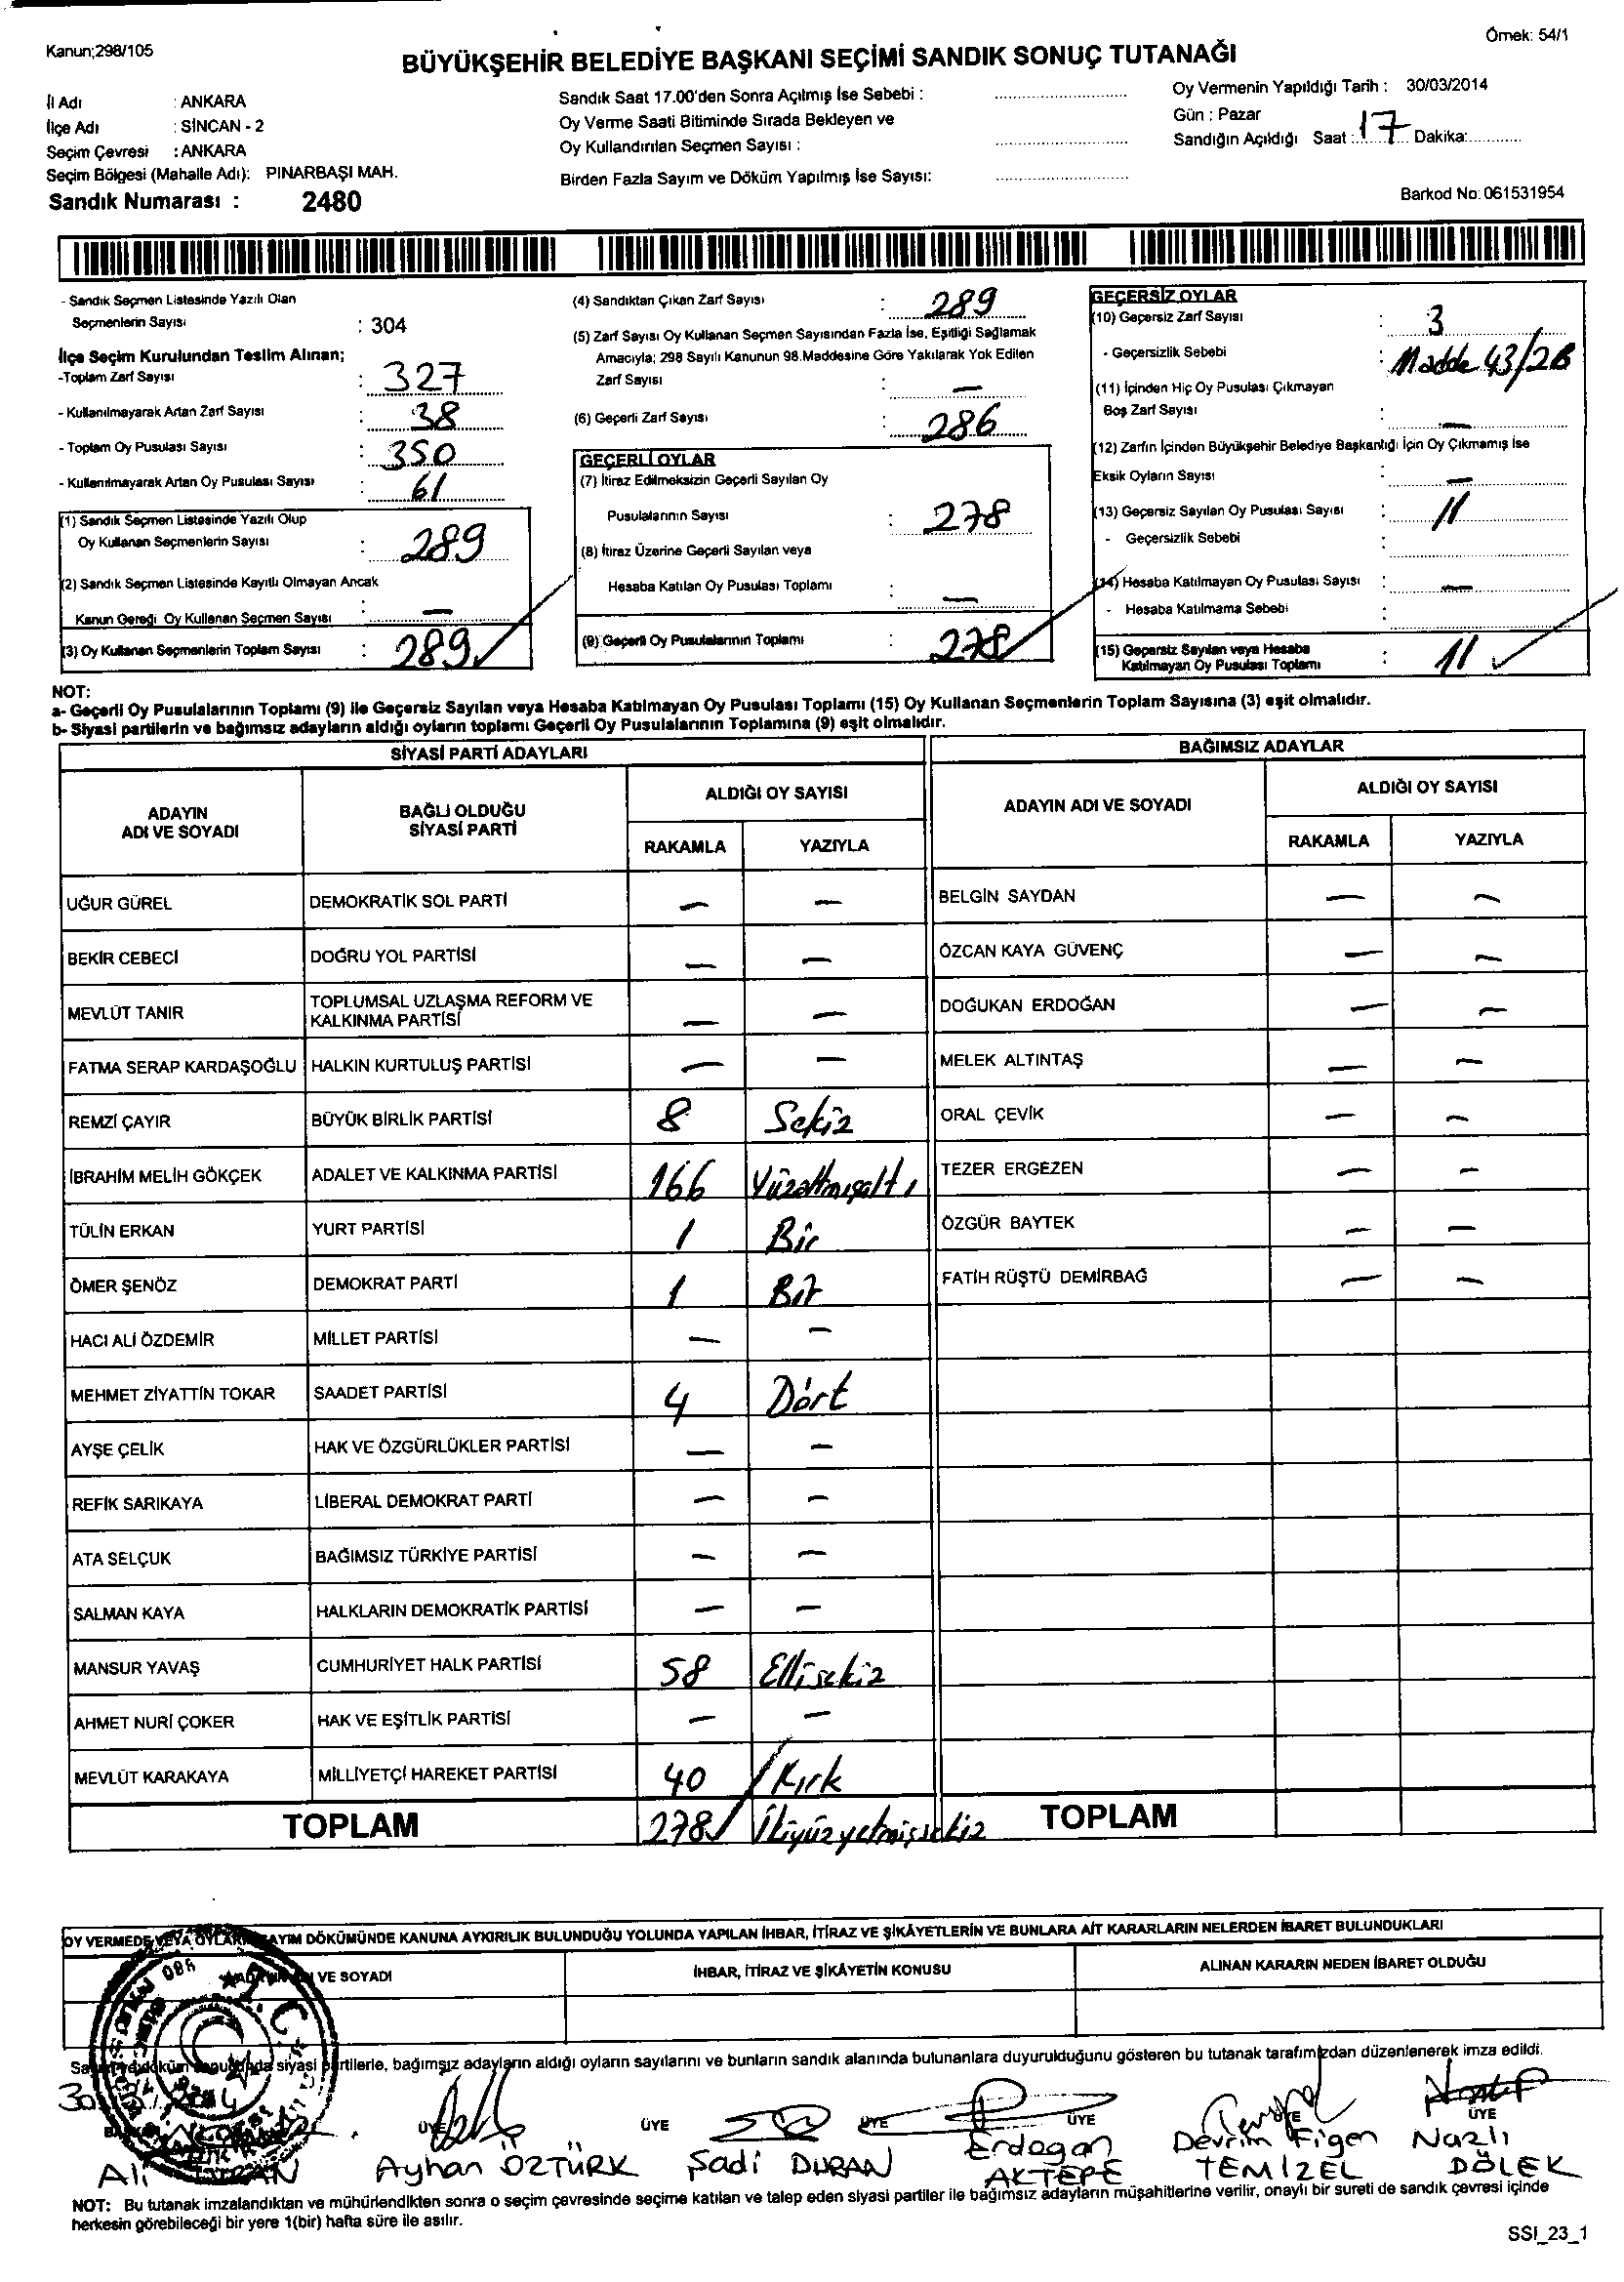 Kanun;298/105
Örnek: 54/1
BÜYÜKŞEHİR BELEDİYE BAŞKANI SEÇİMİ SANDIK SONUÇ TUTANAĞI
İl Adı : ANKARA
İlçe Adı : SİNCAN - 2
Seçim Çevresi : ANKARA
Seçim Bölgesi (Mahalle Adı): PINARBAŞI MAH.
Sandık Numarası : 2480
Sandık Saat 17.00'den Sonra Açılmış İse Sebebi :
Oy Verme Saati Bitiminde Sırada Bekleyen ve
Oy Kullandırılan Seçmen Sayısı :
Birden Fazla Sayım ve Döküm Yapılmış İse Sayısı:
Oy Vermenin Yapıldığı Tarih : 30/03/2014
Gün : Pazar
Sandığın Açıldığı Saat : 17 Dakika:
Barkod No: 061531954
- Sandık Seçmen Listesinde Yazılı Olan
Seçmenlerin Sayısı : 304
İlçe Seçim Kurulundan Teslim Alınan;
-Toplam Zarf Sayısı : 327
- Kullanılmayarak Artan Zarf Sayısı : 38
- Toplam Oy Pusulası Sayısı : 350
- Kullanılmayarak Artan Oy Pusulası Sayısı : 61
(1) Sandık Seçmen Listesinde Yazılı Olup
Oy Kullanan Seçmenlerin Sayısı : 289
(2) Sandık Seçmen Listesinde Kayıtlı Olmayan Ancak
Kanun Gereği Oy Kullanan Seçmen Sayısı : —
(3) Oy Kullanan Seçmenlerin Toplam Sayısı : 289
(4) Sandıktan Çıkan Zarf Sayısı : 289
(5) Zarf Sayısı Oy Kullanan Seçmen Sayısından Fazla İse, Eşitliği Sağlamak
Amacıyla; 298 Sayılı Kanunun 98.Maddesine Göre Yakılarak Yok Edilen
Zarf Sayısı : —
(6) Geçerli Zarf Sayısı : 286
GEÇERLİ OYLAR
(7) İtiraz Edilmeksizin Geçerli Sayılan Oy
Pusulalarının Sayısı : 278
(8) İtiraz Üzerine Geçerli Sayılan veya
Hesaba Katılan Oy Pusulası Toplamı : —
(9) Geçerli Oy Pusulalarının Toplamı : 278
GEÇERSİZ OYLAR
(10) Geçersiz Zarf Sayısı : 3
- Geçersizlik Sebebi : Madde 43/2B
(11) İçinden Hiç Oy Pusulası Çıkmayan
Boş Zarf Sayısı : —
(12) Zarfın İçinden Büyükşehir Belediye Başkanlığı İçin Oy Çıkmamış İse
Eksik Oyların Sayısı —
(13) Geçersiz Sayılan Oy Pusulası Sayısı : 11
- Geçersizlik Sebebi :
(14) Hesaba Katılmayan Oy Pusulası Sayısı : —
- Hesaba Katılmama Sebebi :
(15) Geçersiz Sayılan veya Hesaba
Katılmayan Oy Pusulası Toplamı : 11
NOT:
a- Geçerli Oy Pusulalarının Toplamı (9) ile Geçersiz Sayılan veya Hesaba Katılmayan Oy Pusulası Toplamı (15) Oy Kullanan Seçmenlerin Toplam Sayısına (3) eşit olmalıdır.
b- Siyasi partilerin ve bağımsız adayların aldığı oyların toplamı Geçerli Oy Pusulalarının Toplamına (9) eşit olmalıdır.
SİYASİ PARTİ ADAYLARI
ADAYIN ADI VE SOYADI
BAĞLI OLDUĞU SİYASİ PARTİ
ALDIĞI OY SAYISI
RAKAMLA YAZIYLA
UĞUR GÜREL DEMOKRATİK SOL PARTİ — —
BEKİR CEBECİ DOĞRU YOL PARTİSİ — —
MEVLÜT TANIR TOPLUMSAL UZLAŞMA REFORM VE KALKINMA PARTİSİ — —
FATMA SERAP KARDAŞOĞLU HALKIN KURTULUŞ PARTİSİ — —
REMZİ ÇAYIR BÜYÜK BİRLİK PARTİSİ 8 Sekiz
İBRAHİM MELİH GÖKÇEK ADALET VE KALKINMA PARTİSİ 166 Yüzaltmışaltı
TÜLİN ERKAN YURT PARTİSİ 1 Bir
ÖMER ŞENÖZ DEMOKRAT PARTİ 1 Bir
HACI ALİ ÖZDEMİR MİLLET PARTİSİ — —
MEHMET ZİYATTİN TOKAR SAADET PARTİSİ 4 Dört
AYŞE ÇELİK HAK VE ÖZGÜRLÜKLER PARTİSİ — —
REFİK SARIKAYA LİBERAL DEMOKRAT PARTİ — —
ATA SELÇUK BAĞIMSIZ TÜRKİYE PARTİSİ — —
SALMAN KAYA HALKLARIN DEMOKRATİK PARTİSİ — —
MANSUR YAVAŞ CUMHURİYET HALK PARTİSİ 58 Ellisekiz
AHMET NURİ ÇOKER HAK VE EŞİTLİK PARTİSİ — —
MEVLÜT KARAKAYA MİLLİYETÇİ HAREKET PARTİSİ 40 Kırk
TOPLAM 278 İkiyüzyetmişsekiz
BAĞIMSIZ ADAYLAR
ADAYIN ADI VE SOYADI
ALDIĞI OY SAYISI
RAKAMLA YAZIYLA
BELGİN SAYDAN — —
ÖZCAN KAYA GÜVENÇ — —
DOĞUKAN ERDOĞAN — —
MELEK ALTINTAŞ — —
ORAL ÇEVİK — —
TEZER ERGEZEN — —
ÖZGÜR BAYTEK — —
FATİH RÜŞTÜ DEMİRBAĞ — —
TOPLAM
OY VERMEDE VEYA OYLARIN SAYIM DÖKÜMÜNDE KANUNA AYKIRILIK BULUNDUĞU YOLUNDA YAPILAN İHBAR, İTİRAZ VE ŞİKÂYETLERİN VE BUNLARA AİT KARARLARIN NELERDEN İBARET BULUNDUKLARI
VE SOYADI
İHBAR, İTİRAZ VE ŞİKÂYETİN KONUSU
ALINAN KARARIN NEDEN İBARET OLDUĞU
siyasi partilerle, bağımsız adayların aldığı oyların sayılarını ve bunların sandık alanında bulunanlara duyurulduğunu gösteren bu tutanak tarafımızdan düzenlenerek imza edildi.
ÜYE ÜYE ÜYE ÜYE ÜYE ÜYE
Ali
Ayhan ÖZTÜRK
Şadi DURAN
Erdogan AKTEPE
Devrim Figen TEMİZEL
Nazlı DÖLEK
NOT: Bu tutanak imzalandıktan ve mühürlendikten sonra o seçim çevresinde seçime katılan ve talep eden siyasi partiler ile bağımsız adayların müşahitlerine verilir, onaylı bir sureti de sandık çevresi içinde
herkesin görebileceği bir yere 1(bir) hafta süre ile asılır.
SSI_23_1